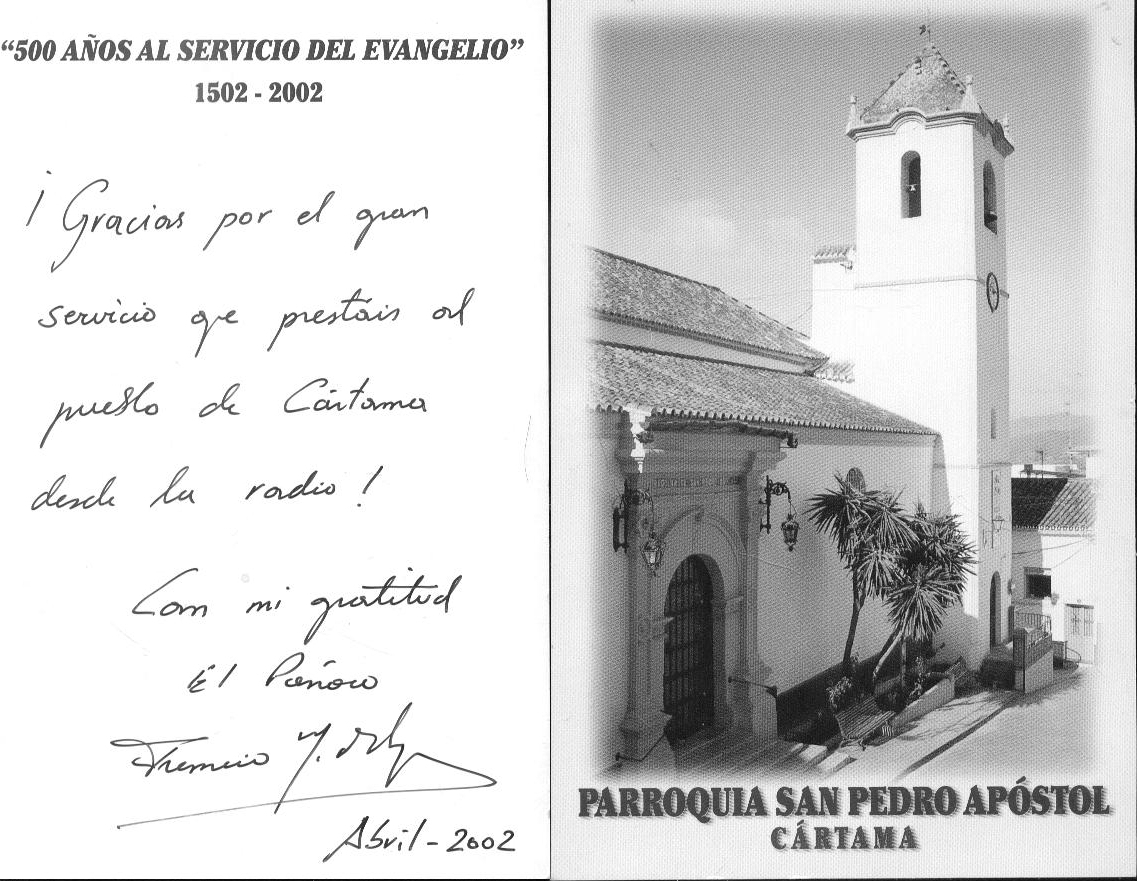 “500 AÑOS AL SERVICIO DEL EVANGELIO”
1502 - 2002
¡Gracias por el gran
servicio que prestáis al
pueblo de Cártama
desde la radio!
Con mi gratitud
El Párroco
Abril - 2002
PARROQUIA SAN PEDRO APÓSTOL
CÁRTAMA